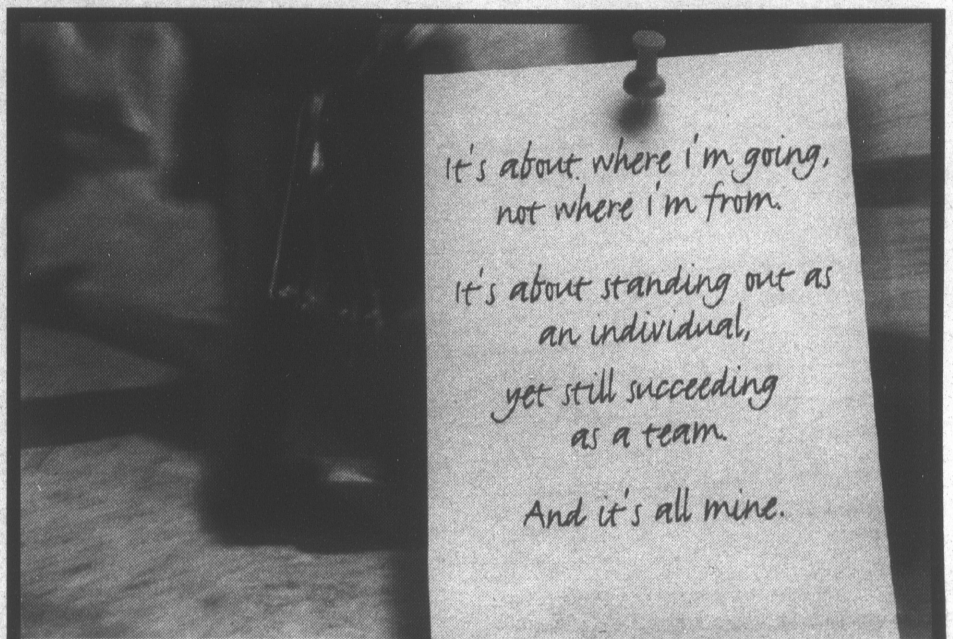 It's about where i'm going,
not where i'm from.
It's about standing out as
an individual,
yet still succeeding
as a team.
And it's all mine.